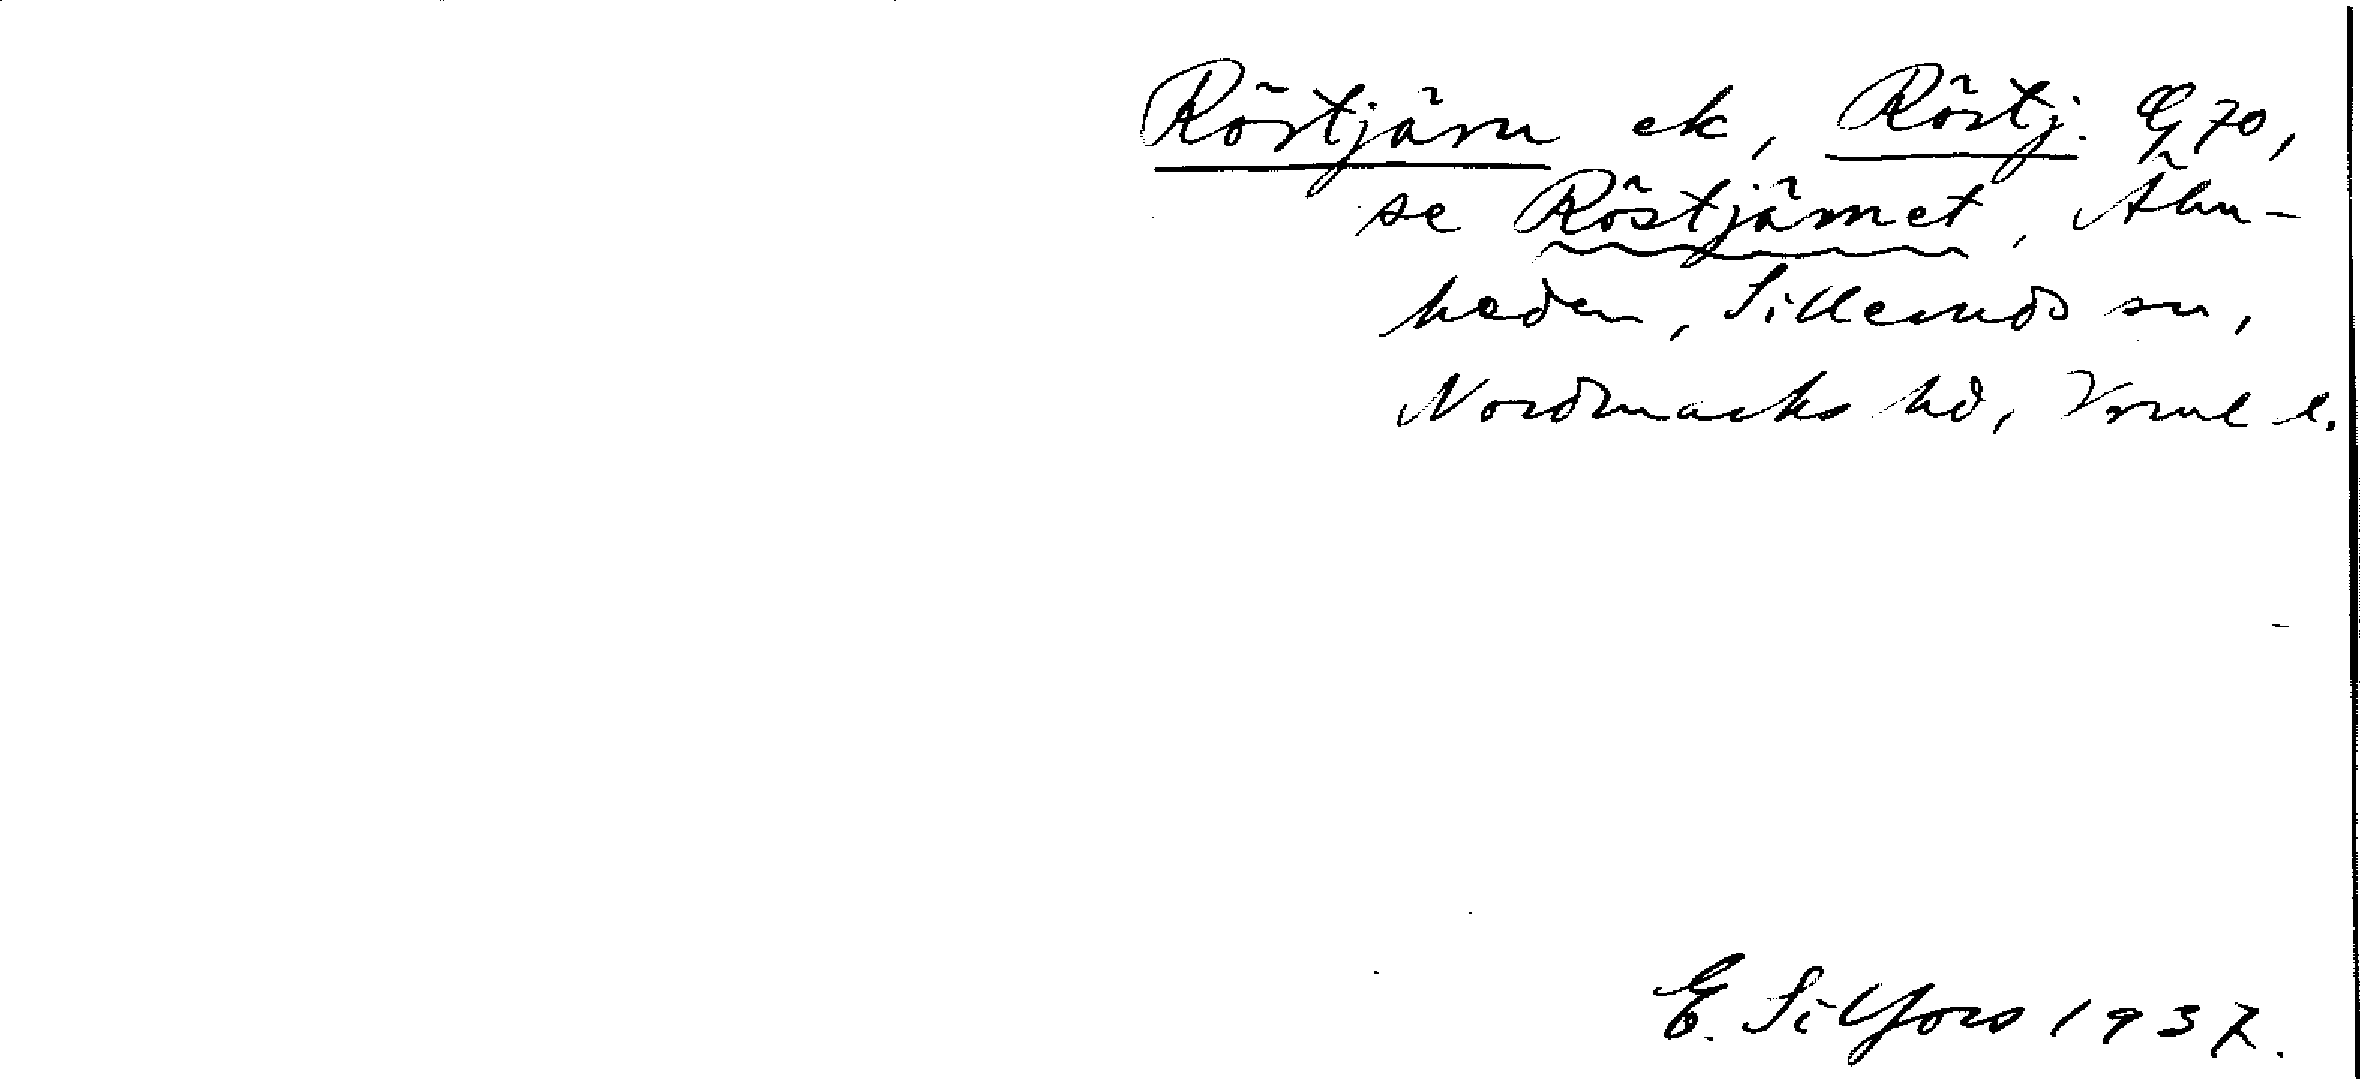 Röstjärn ek, Röstj. G 70,
se Röstjärnet, Älm-
heden, Silleruds sn,
Nordmarks hd, Vrml l.
E. Silfors 1937.